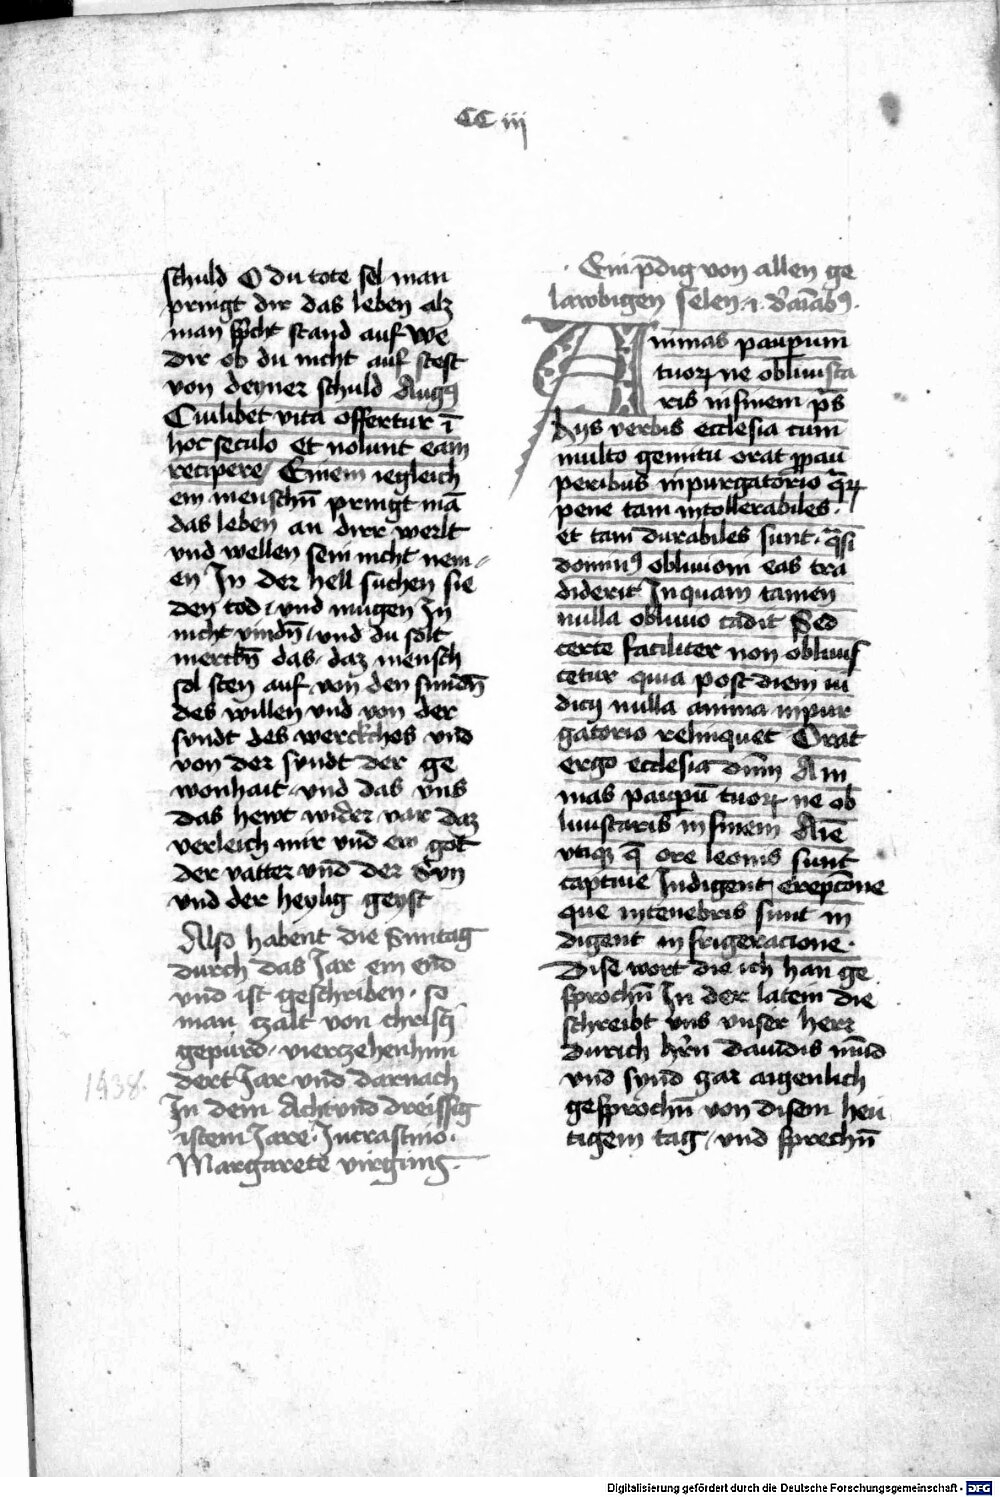 CC iij
schuld O du tote sel man
pringt dir das leben alz
man spᷤcht stand auf we
dir ob du nicht auf stest
von deyner schuld Augꝰ
Cuilibet vita offertur ī
hoc seculo et nolunt eam
recipere Einem iegleich
em menschn̄ pringt mā
das leben an dirr werlt
vnd wellen sein nicht nem⸗
en In der hell suchen sie
den tod / vnd mugen In
nicht vindn̄ / vnd du solt
merckn̄ das / daz mensch
sol sten auf von den sundn̄
des willen vnd von der
syndt des werckches vnd
von der syndt der ge
wonhait / vnd das vns
das hewt wider var daz
verleich mir vnd ew got
der vatter vnd der Sun
vnd der heylig geyst
Also habent die Suntag
durch das Jar ein end
vnd ist geschriben · so
man czalt von christi
gepurd / vierczehenhun
dert Jar vnd darnach
In dem Acht vnd dreissig
istem Jare · In crastino ·
Margarete virginis ·
1438.
· Ein p̄dig von allen ge
lawbigen selen ·
Animas pauperum
tuoꝝ ne obliuisca
ris in finem p̄s
Hys verbis ecclesia cum
multo gemitu orat ꝓ pau
peribus in purgatorio
pene tam intollerabiles ·
et tam durabiles sunt · q̄si
dominꝰ obliuioni eas tra
diderit In quam tamen
nulla obliuio cadit Sed
certe faciliter non obliuis
cetur quia post diem iu
dicij nulla anima in pur
gatorio relinquet Orat
ergo ecclesia dn̄m Ani
mas paupeꝝ tuoꝝ ne ob
liuiscaris in finem Aīe
vtiqꝫ q̄ ore leonis sunt
captiue Indigent erepcōne
que in tenebris sunt in
digent in frigeracione ·
Dise wort die ich han ge
sprochn̄ In der latein die
schreibt vns vnser herr
durich hr̄n dauidis mūd
vnd synd gar aigenlich
gesprochn̄ von disem heu
tigem tag / vnd sprechn̄
Digitalisierung gefördert durch die Deutsche Forschungsgemeinschaft - DFG